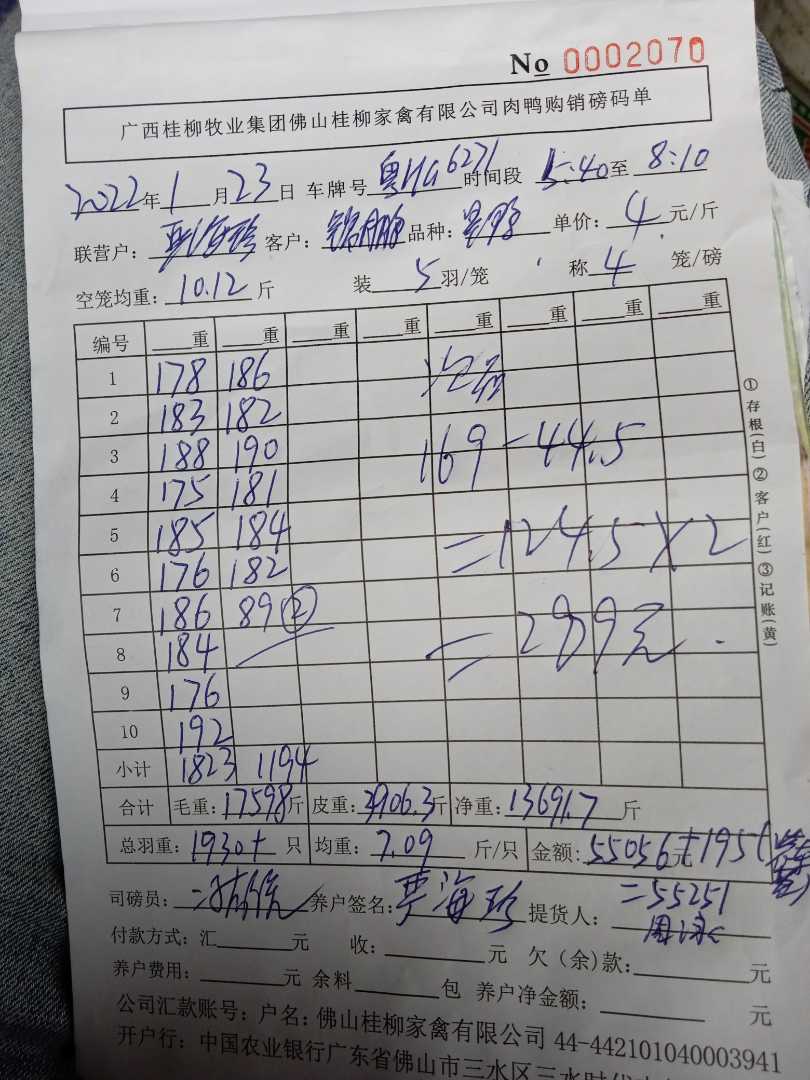 No 0002070
广西桂柳牧业集团佛山桂柳家禽有限公司肉鸭购销磅码单
2022年1月23日 车牌号粤HG6271时间段 15:40至 8:10
联营户: 客户: 品种: 单价: 4 元/斤
空笼均重: 10.12 斤 装 5 羽/笼 称 4 笼/磅
编号 重 重 重 重 重 重 重 重
1 178 186
2 183 182
3 188 190 169-44.5
4 175 181
5 185 184 =124.5×2
6 176 182
7 186 89 ② =289元
8 184
9 176
10 192
小计 1823 1194
合计 毛重: 17598斤 皮重: 3906.3斤 净重: 13691.7 斤
总羽重: 1930+ 只 均重: 7.09 斤/只 金额: 55056元+195
=55251
司磅员: 养户签名: 覃海珍 提货人:
付款方式: 汇 元 收: 元 欠(余)款: 元
养户费用: 元 余料 包 养户净金额: 元
公司汇款账号: 户名: 佛山桂柳家禽有限公司 44-442101040003941
开户行: 中国农业银行广东省佛山市三水区三水时代
①存根(白)②客户(红)③记账(黄)